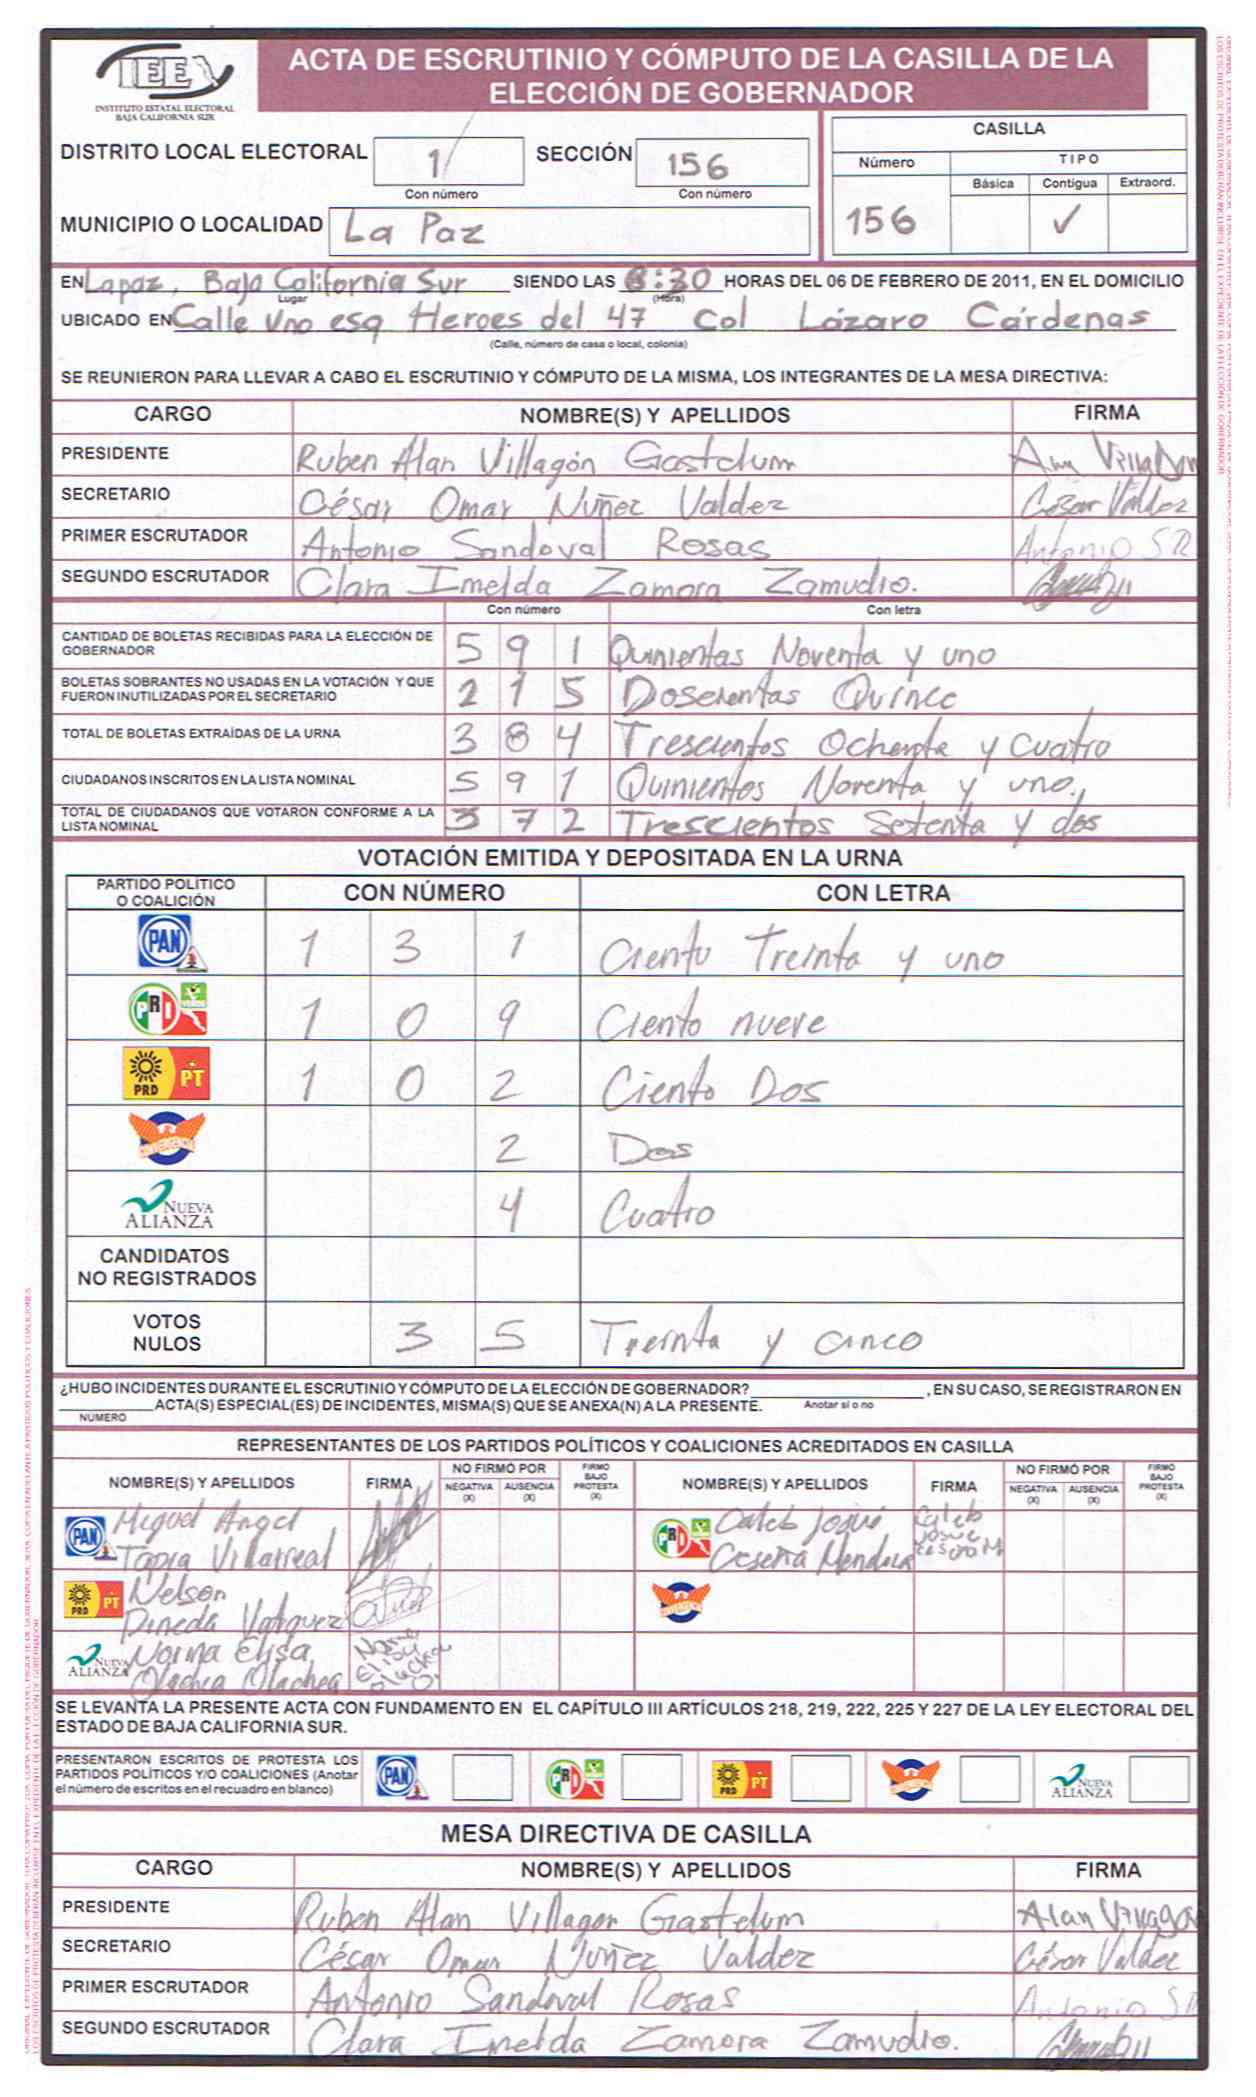 IEE
INSTITUTO ESTATAL ELECTORAL
BAJA CALIFORNIA SUR
ACTA DE ESCRUTINIO Y CÓMPUTO DE LA CASILLA DE LA
ELECCIÓN DE GOBERNADOR
DISTRITO LOCAL ELECTORAL 1 SECCIÓN 156
Con número Con número
MUNICIPIO O LOCALIDAD La Paz
CASILLA
Número TIPO
Básica Contigua Extraord.
156 ✓
EN La paz, Baja California Sur SIENDO LAS 6:30 HORAS DEL 06 DE FEBRERO DE 2011, EN EL DOMICILIO
Lugar (Hora)
UBICADO EN Calle Uno esq Heroes del 47 Col Lázaro Cárdenas
(Calle, número de casa o local, colonia)
SE REUNIERON PARA LLEVAR A CABO EL ESCRUTINIO Y CÓMPUTO DE LA MISMA, LOS INTEGRANTES DE LA MESA DIRECTIVA:
CARGO NOMBRE(S) Y APELLIDOS FIRMA
PRESIDENTE Ruben Alan Villagón Gastelum
SECRETARIO César Omar Nuñez Valdez César Valdez
PRIMER ESCRUTADOR Antonio Sandoval Rosas Antonio SR
SEGUNDO ESCRUTADOR Clara Imelda Zamora Zamudio.
Con número Con letra
CANTIDAD DE BOLETAS RECIBIDAS PARA LA ELECCIÓN DE
GOBERNADOR 5 9 1 Quinientas Noventa y uno
BOLETAS SOBRANTES NO USADAS EN LA VOTACIÓN Y QUE
FUERON INUTILIZADAS POR EL SECRETARIO 2 1 5 Doscientas Quince
TOTAL DE BOLETAS EXTRAÍDAS DE LA URNA 3 8 4 Trescientos Ochenta y Cuatro
CIUDADANOS INSCRITOS EN LA LISTA NOMINAL 5 9 1 Quinientos Noventa y uno.
TOTAL DE CIUDADANOS QUE VOTARON CONFORME A LA
LISTA NOMINAL 3 7 2 Trescientos Setenta y dos
VOTACIÓN EMITIDA Y DEPOSITADA EN LA URNA
PARTIDO POLÍTICO
O COALICIÓN CON NÚMERO CON LETRA
PAN 1 3 1 Ciento Treinta y uno
PRI VERDE 1 0 9 Ciento nueve
PRD PT 1 0 2 Ciento Dos
CONVERGENCIA 2 Dos
NUEVA ALIANZA 4 Cuatro
CANDIDATOS
NO REGISTRADOS
VOTOS
NULOS 3 5 Treinta y cinco
¿HUBO INCIDENTES DURANTE EL ESCRUTINIO Y CÓMPUTO DE LA ELECCIÓN DE GOBERNADOR? , EN SU CASO, SE REGISTRARON EN
ACTA(S) ESPECIAL(ES) DE INCIDENTES, MISMA(S) QUE SE ANEXA(N) A LA PRESENTE. Anotar si o no
NUMERO
REPRESENTANTES DE LOS PARTIDOS POLÍTICOS Y COALICIONES ACREDITADOS EN CASILLA
NOMBRE(S) Y APELLIDOS FIRMA NO FIRMÓ POR NEGATIVA (X) AUSENCIA (X) FIRMÓ BAJO PROTESTA (X) NOMBRE(S) Y APELLIDOS FIRMA NO FIRMÓ POR NEGATIVA (X) AUSENCIA (X) FIRMÓ BAJO PROTESTA (X)
PAN Miguel Angel PRI Caleb Josué Caleb Josue
Tapia Villarreal Ceseña Mendoza
PRD PT Nelson CONVERGENCIA
Pineda Vazquez
NUEVA ALIANZA Norma Elisa Norma Elisa
Olachea Olachea Olachea O.
SE LEVANTA LA PRESENTE ACTA CON FUNDAMENTO EN EL CAPÍTULO III ARTÍCULOS 218, 219, 222, 225 Y 227 DE LA LEY ELECTORAL DEL
ESTADO DE BAJA CALIFORNIA SUR.
PRESENTARON ESCRITOS DE PROTESTA LOS
PARTIDOS POLÍTICOS Y/O COALICIONES (Anotar
el número de escritos en el recuadro en blanco) PAN PRI PRD PT CONVERGENCIA NUEVA ALIANZA
MESA DIRECTIVA DE CASILLA
CARGO NOMBRE(S) Y APELLIDOS FIRMA
PRESIDENTE Ruben Alan Villagon Gastelum Alan
SECRETARIO César Omar Nuñez Valdez César Valdez
PRIMER ESCRUTADOR Antonio Sandoval Rosas Antonio SR
SEGUNDO ESCRUTADOR Clara Imelda Zamora Zamudio.